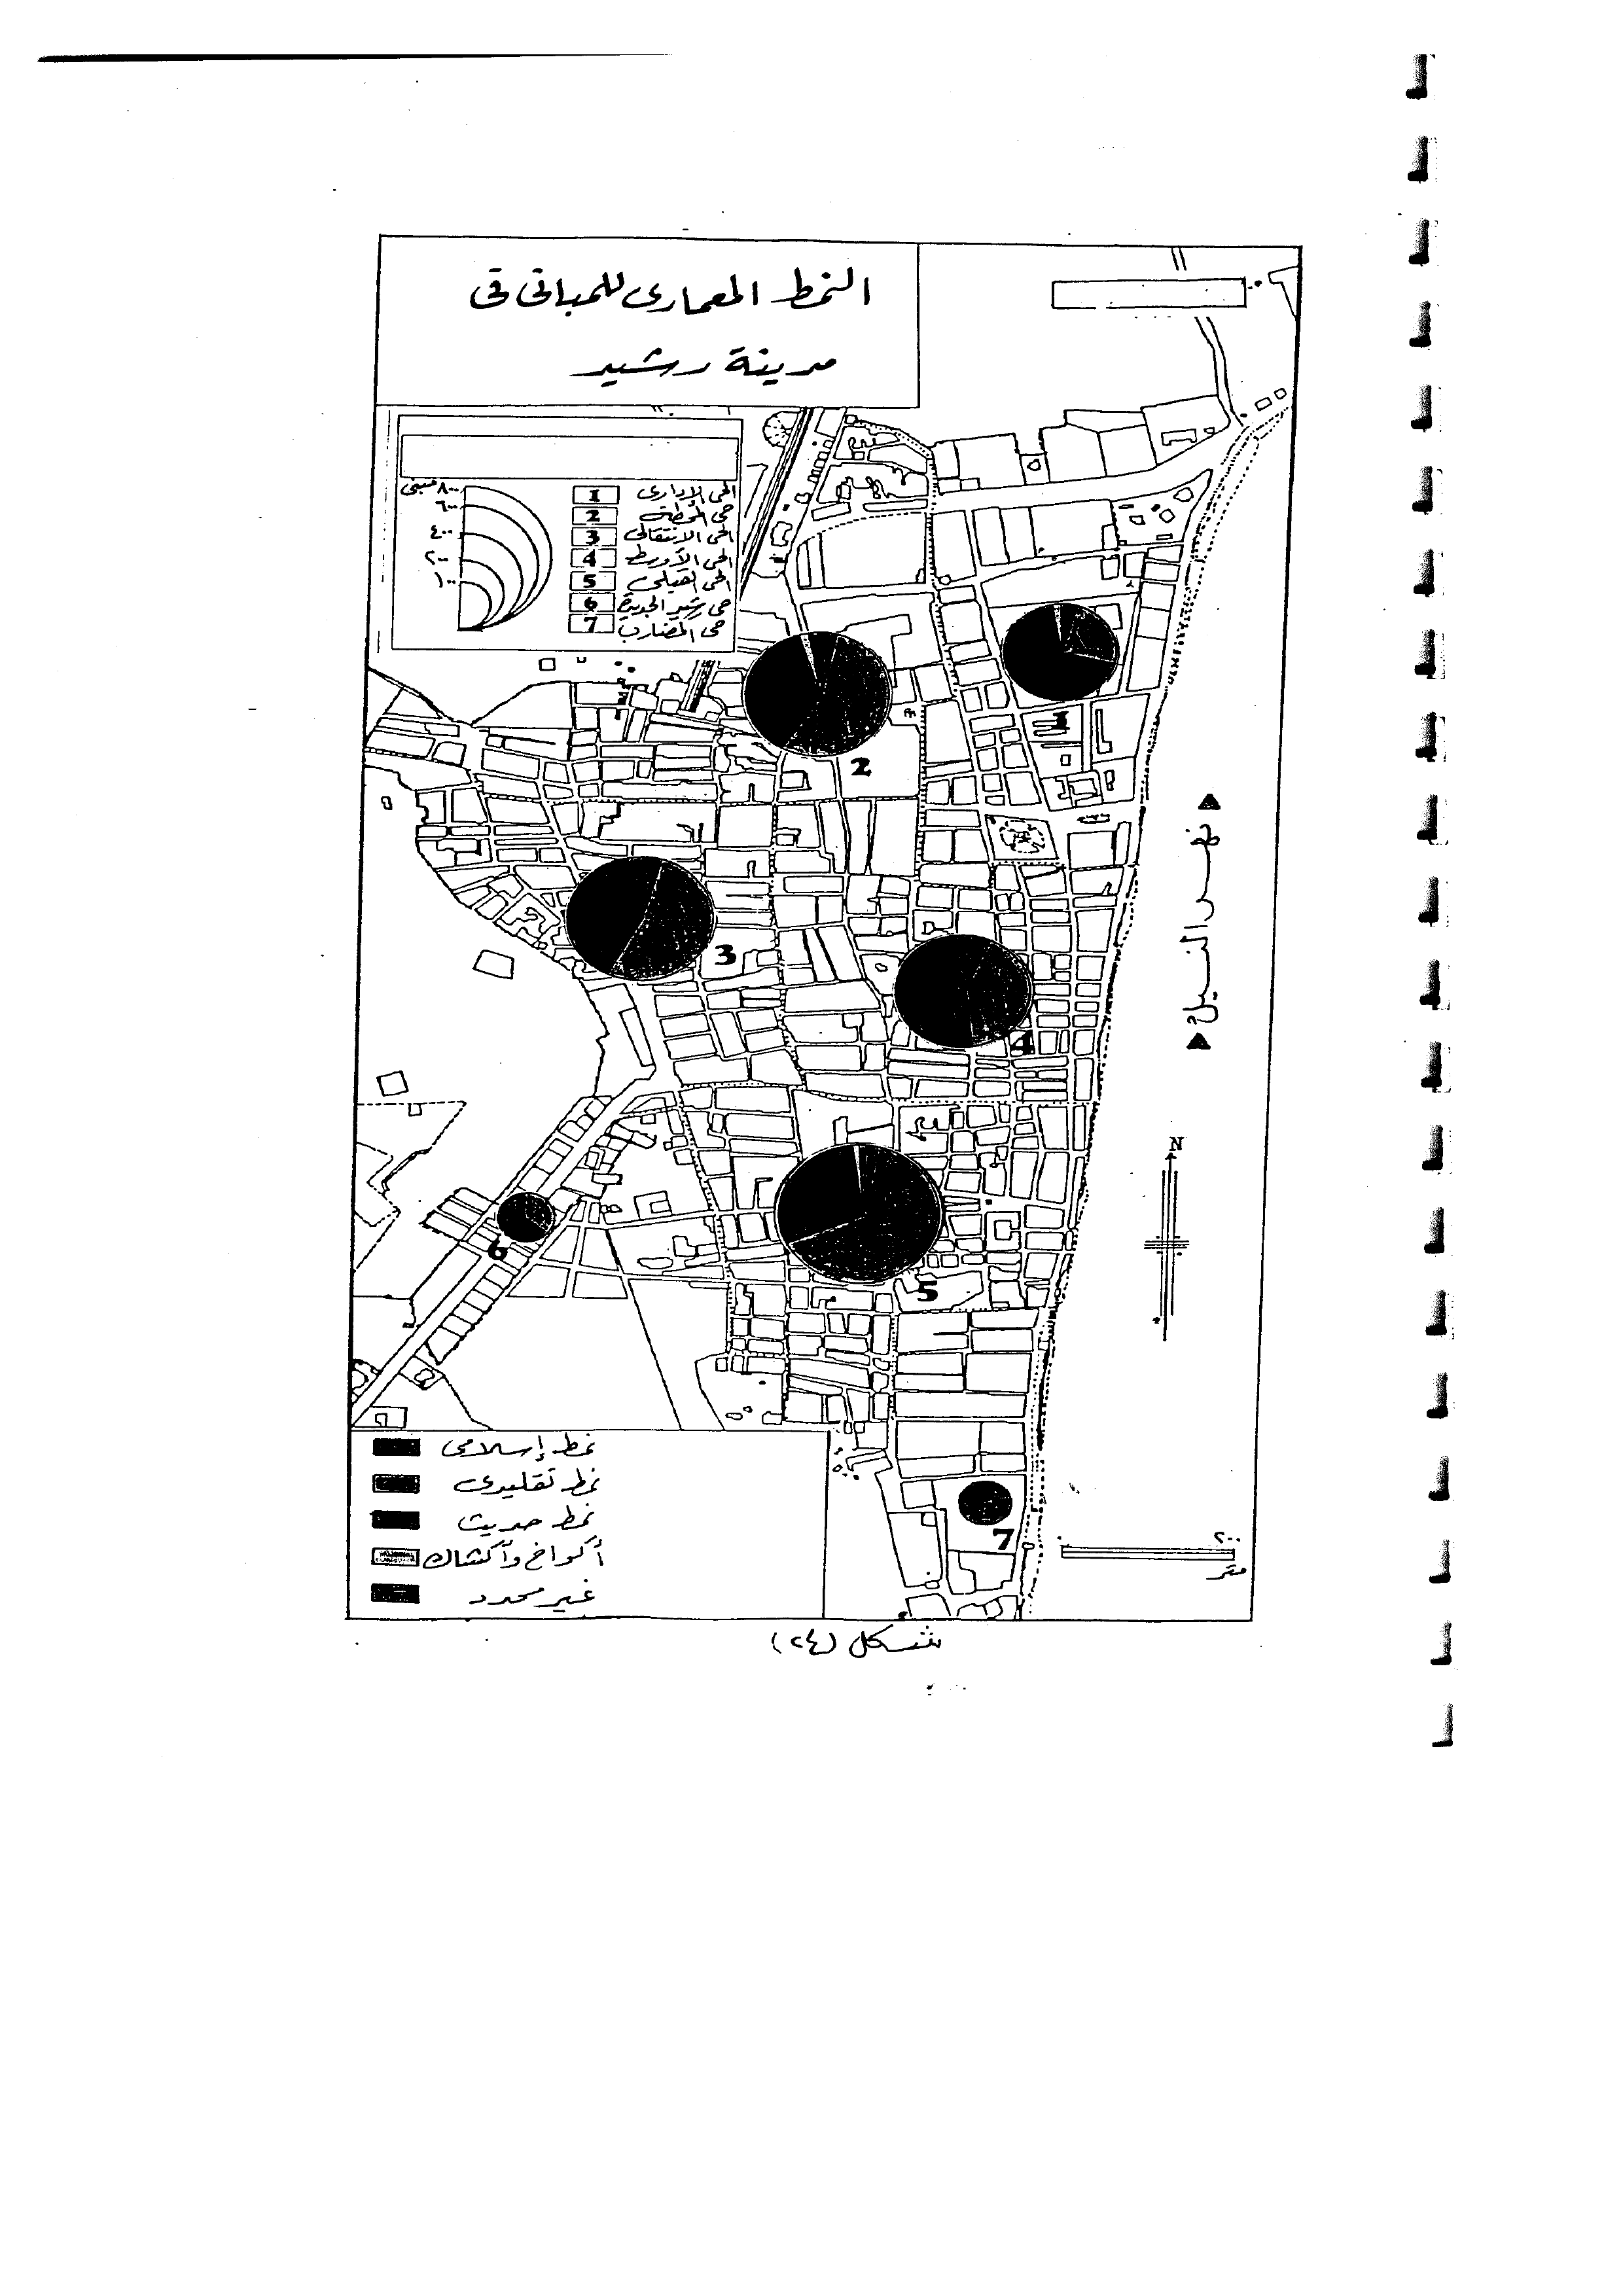 النمط المعمارى للمبانى فى
مدينة رشيد
٨٠٠ مبنى
٦٠٠
٤٠٠
٢٠٠
١٠٠
1 الحى الإدارى
2 حى المحطة
3 الحى الانتقالى
4 الحى الأوسط
5 الحى القبلى
6 حى رشيد الجديدة
7 حى المضارب
1
2
3
4
5
6
7
نهر النيل
N
نمط إسلامى
نمط تقليدى
نمط حديث
أكواخ وأكشاك
غير محدد
٢٠٠
متر
شكل (٢٤)